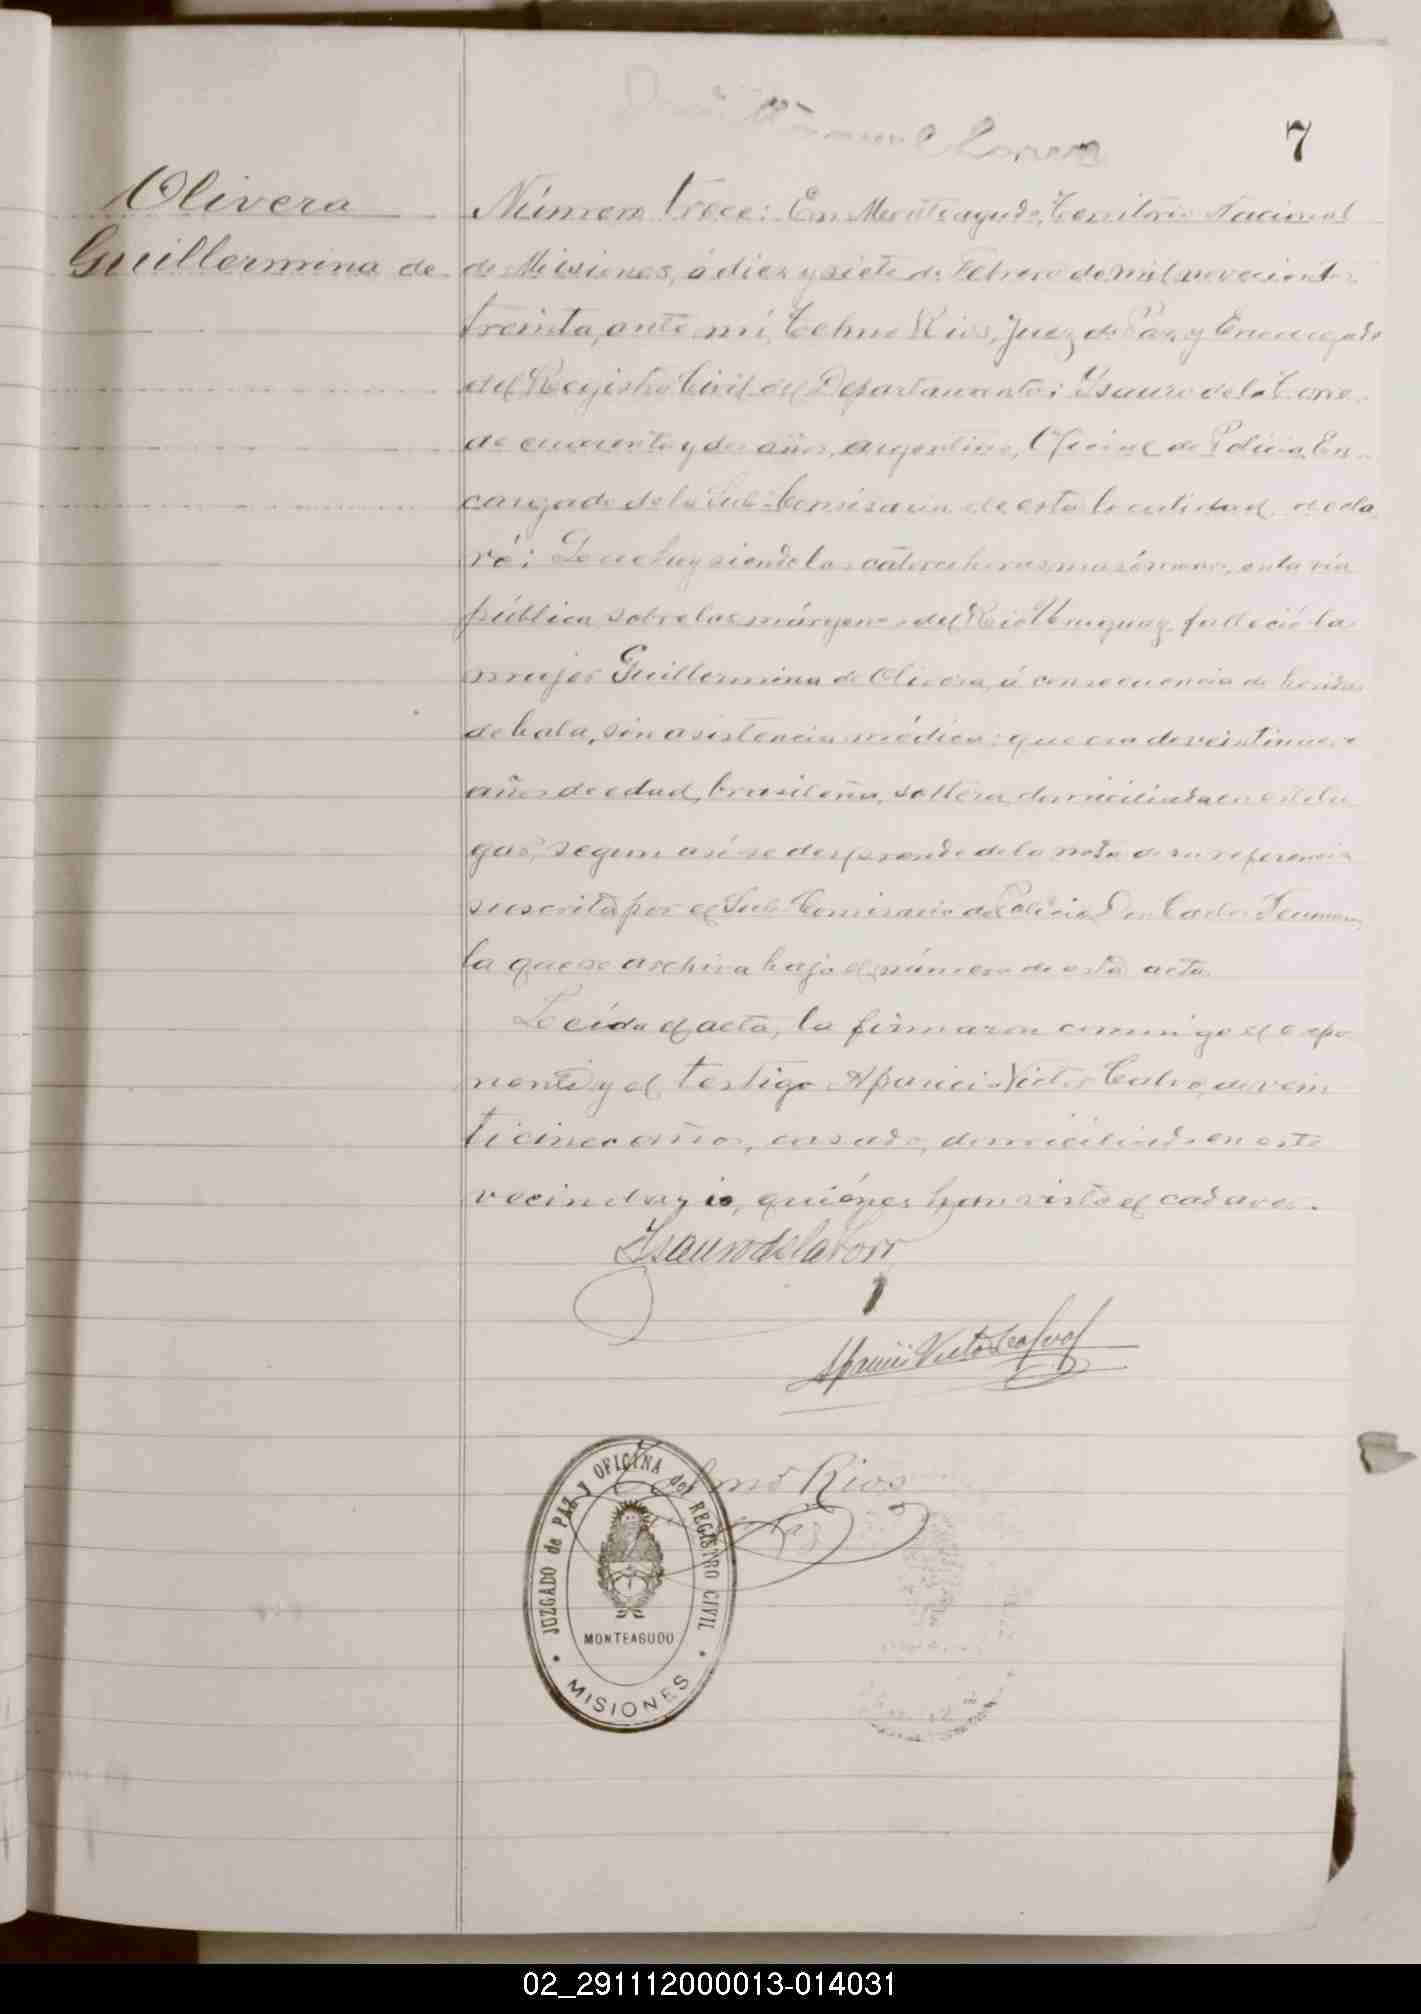 7
Olivera
Guillermina de
Número trece: En Monteagudo, Territorio Nacional
de Misiones, á diez y siete de Febrero de mil novecientos
treinta, ante mí, Telmo Rios, Juez de Paz y Encargado
del Registro Civil del Departamento; Isauro de la Torre,
de cuarenta y dos años, argentino, Oficial de Policia, En-
cargado de la Sub-Comisaria de esta localidad, decla
ró; Que hoy siendo las catorce horas, mas ó menos, en la via
pública, sobre las márgenes del Rio Uruguay, falleció la
mujer Guillermina de Olivera, á consecuencia de heridas
de bala, sin asistencia médica; que era de veintinueve
años de edad, brasileña, soltera, domiciliada en este lu
gar, segun así se desprende de la nota de su referencia
suscrita por el Sub-Comisario de Policia, Don Carlos
la que se archiva bajo el número de esta acta.
Leida el acta, la firmaron conmigo el expo
nente y el testigo Aparicio Victor Calvo, de vein
ticinco años, casado, domiciliado en este
vecindario, quiénes han visto el cadaver.
Isauro de la Torr
Victor Calvo
Telmo Rios
JUZGADO de PAZ y OFICINA del REGISTRO CIVIL
MONTEAGUDO
MISIONES
02_291112000013-014031